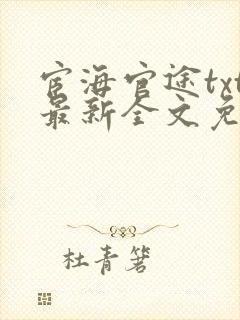 宦海官途txt
最新全文免
杜青箸